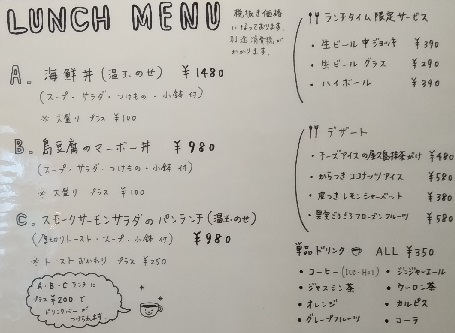 LUNCH MENU
税抜き価格
になっております。
別途消費税が
かかります。
A. 海鮮丼(温玉のせ) ¥1480
(スープ・サラダ・つけもの・小鉢 付)
※大盛り プラス ¥100
B. 島豆腐のマーボー丼 ¥980
(スープ・サラダ・つけもの・小鉢 付)
※大盛り プラス ¥100
C. スモークサーモンサラダのパンランチ(温玉のせ)
(厚切りトースト・スープ・小鉢 付) ¥980
※トーストおかわり プラス ¥250
A・B・Cランチに
プラス ¥200で
ドリンクバーが
つけられます
ランチタイム限定サービス
・生ビール 中ジョッキ ¥390
・生ビール グラス ¥290
・ハイボール ¥390
デザート
・チーズアイスの屋久島抹茶がけ ¥480
・からつき ココナッツアイス ¥580
・皮つき レモンシャーベット ¥380
・果実ごろごろフローズンフルーツ ¥580
単品ドリンク ALL ¥350
・コーヒー(Ice・Hot)
・ジャスミン茶
・オレンジ
・グレープフルーツ
・ジンジャーエール
・ウーロン茶
・カルピス
・コーラ